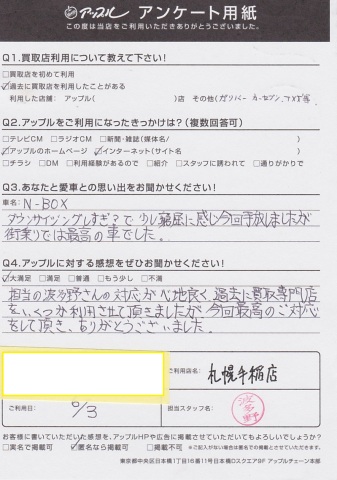 アップル アンケート用紙
この度は当店をご利用いただきありがとうございました。
Q1.買取店利用について教えて下さい!
□買取店を初めて利用
☑過去に買取店を利用したことがある
利用した店舗: アップル( )店 その他(ガリバー カーセブン
Q2.アップルをご利用になったきっかけは?(複数回答可)
□テレビCM □ラジオCM □新聞・雑誌(媒体名/ )
☑アップルのホームページ ☑インターネット(サイト名 )
□チラシ □DM □利用経験があるので □紹介 □スタッフに誘われて □通りがかりで
Q3.あなたと愛車との思い出をお聞かせください!
車名: N-BOX
ダウンサイジングしすぎ?で少し窮屈に感じ今回手放しましたが
街乗りでは最高の車でした。
Q4.アップルに対する感想をぜひお聞かせください!
☑大満足 □満足 □普通 □もう少し □不満
担当の波多野さんの対応が心地良く、過去に買取専門店
をいくつか利用させて頂きましたが、今回最高のご対応
をして頂き、ありがとうございました。
ご利用店名: 札幌手稲店
ご利用日: 6/3
担当スタッフ名: 波多野
お客様に書いていただいた感想を、アップルHPや広告に掲載させていただいてもよろしいでしょうか?
□実名で掲載可 ☑匿名なら掲載可 □掲載不可 ※ご記入がない場合は匿名での掲載とさせていただきます。
東京都中央区日本橋1丁目16番11号日本橋Dスクエア9F アップルチェーン本部